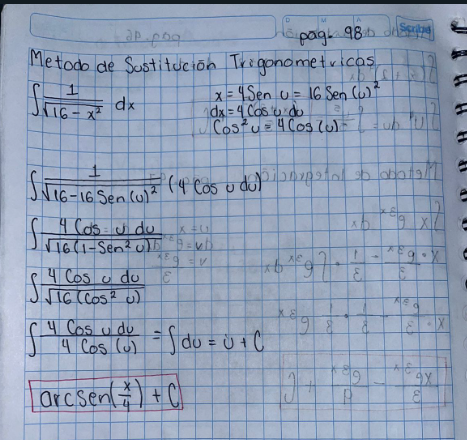 pag. 98
Scribe
Metodo de Sustitución Trigonometricas
∫ 1/√(16 - x²) dx
x = 4 Sen u = 16 Sen (u)²
dx = 4 Cos u du
Cos² u = 4 Cos (u)
∫ 1/√(16 - 16 Sen (u)²) (4 Cos u du)
∫ 4 Cos u du/√(16 (1 - Sen² u))
∫ 4 Cos u du/√(16 (Cos² u))
∫ 4 Cos u du/4 Cos (u) = ∫ du = u + C
arcsen(x/4) + C